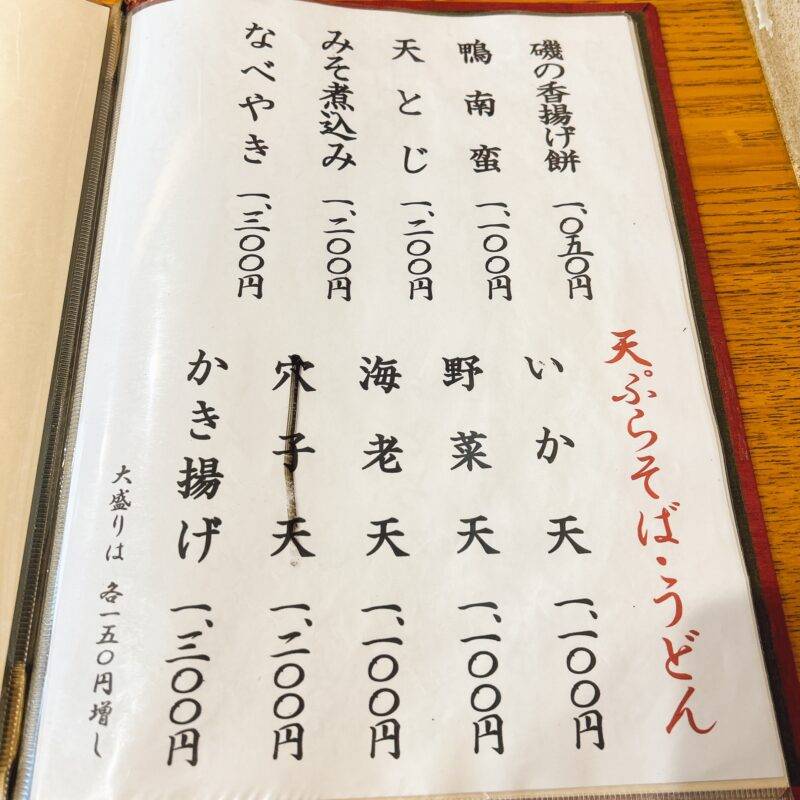 磯の香揚げ餅 一、〇五〇円
鴨南蛮 一、一〇〇円
天とじ 一、二〇〇円
みそ煮込み 一、二〇〇円
なべやき 一、三〇〇円
天ぷらそば・うどん
いか天 一、一〇〇円
野菜天 一、一〇〇円
海老天 一、一〇〇円
穴子天 一、二〇〇円
かき揚げ 一、三〇〇円
大盛りは 各一五〇円増し